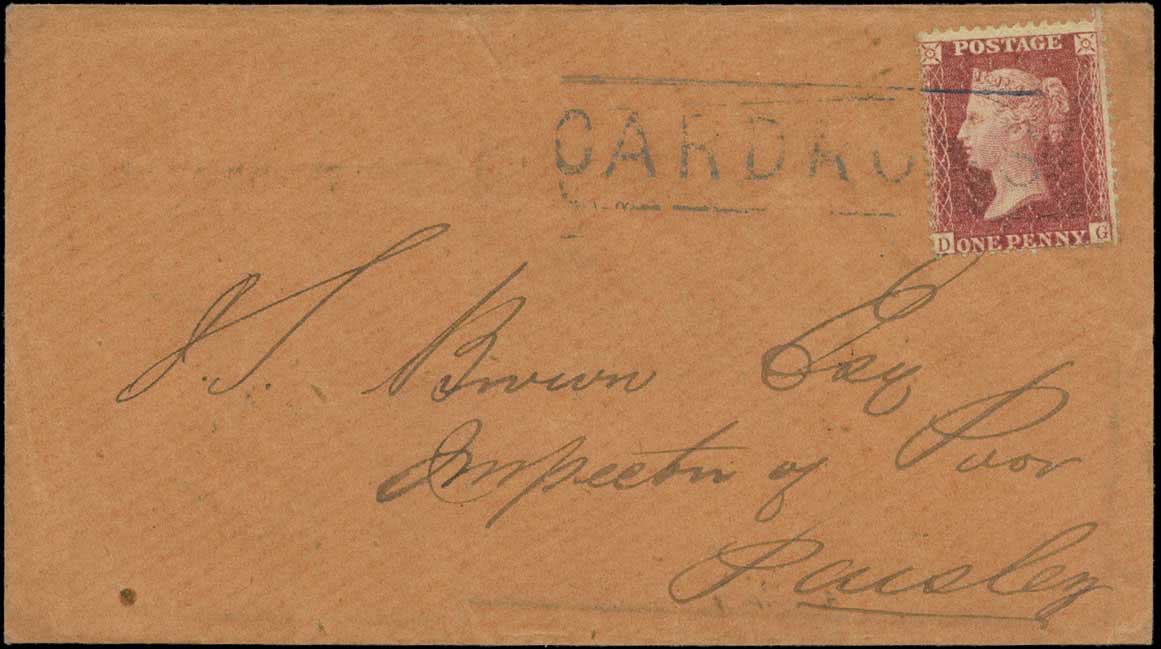 POSTAGE
CARDRO
D ONE PENNY G
J. T. Brown Esq
Inspector of Poor
Paisley